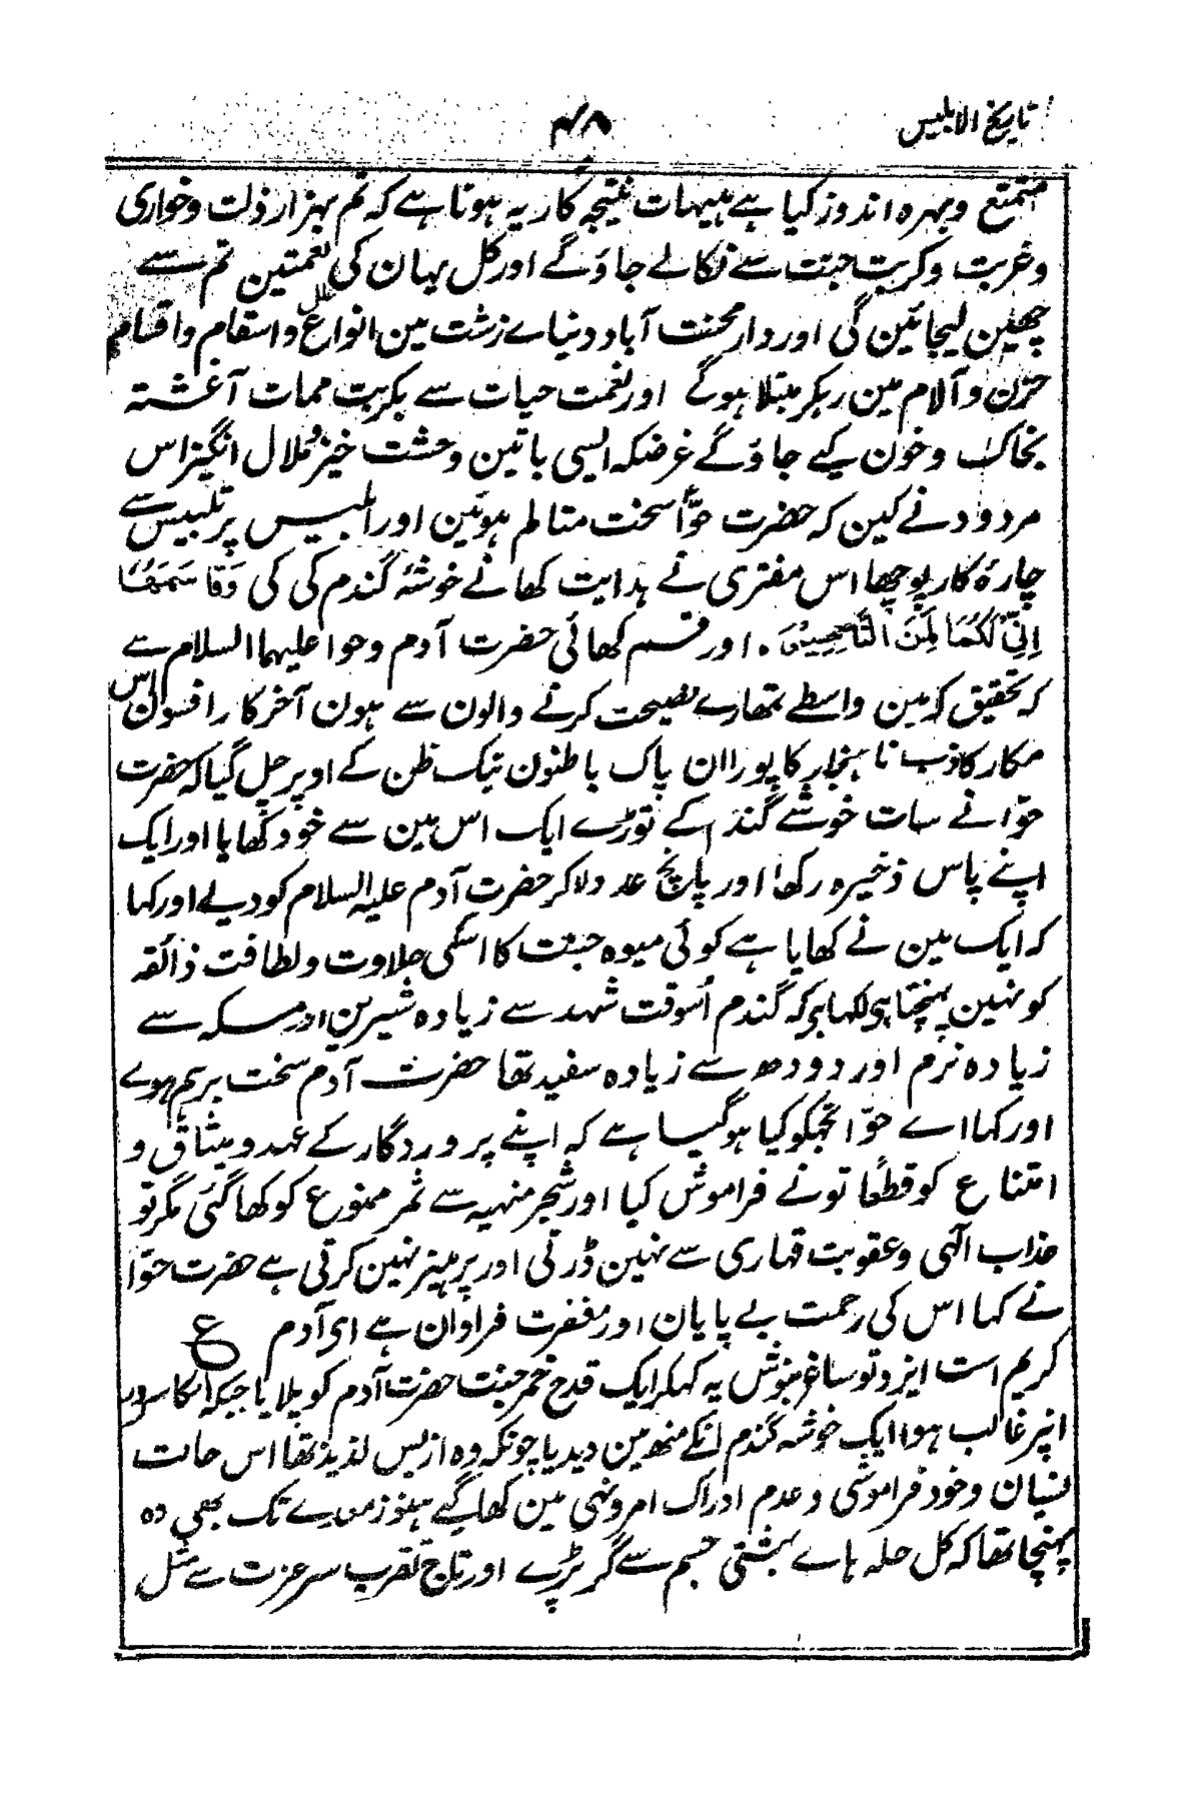 تاریخ الابلیس
۴۸
متمتع وبہرہ اندوز کیا ہے ہیہات نتیجہ کار یہ ہوتا ہے کہ تم بہزار ذلت وخواری
وغربت وکربت جنت سے نکالے جاؤگے اور کل یہان کی نعمتین تم سے
چھین لیجائین گی اور دار محنت آباد دنیاے زشت مین انواع علل واسقام واقسام
حزن وآلام مین رہکر مبتلا ہوگے اور نعمت حیات سے بکربت ممات آغشتہ
بخاک وخون کیے جاؤگے غرضکہ ایسی باتین وحشت خیز وملال انگیز اس
مردود نے کین کہ حضرت حوّا سخت متالم ہوئین اور ابلیس پر تلبیس سے
چارۂ کار پوچھا اس مفتری نے ہدایت کھانے خوشۂ گندم کی کی وَقَاسَمَهُمَا
اِنِّیْ لَکُمَا لَمِنَ النَّاصِحِیْنَ ۔ اور قسم کھائی حضرت آدم وحوا علیہما السلام سے
کہ تحقیق کہ مین واسطے تمھارے نصیحت کرنے والون سے ہون آخر کار افسون اس
مکار کاذب ناہنجار کا پورا ان پاک باطنون نیک ظن کے اوپر چل گیا کہ حضرت
حوّا نے سات خوشے گندم کے توڑے ایک اس مین سے خود کھایا اور ایک
اپنے پاس ذخیرہ رکھا اور پانچ عدد لاکر حضرت آدم علیہ السلام کو دیے اور کہا
کہ ایک مین نے کھایا ہے کوئی میوہ جنت کا اسکی حلاوت ولطافت ذائقہ
کو نہین پہنچتا ہی لکھا ہی کہ گندم اُسوقت شہد سے زیادہ شیرین اور مسکہ سے
زیادہ نرم اور دودھ سے زیادہ سفید تھا حضرت آدم سخت برہم ہوے
اور کہا اے حوّا تجھکو کیا ہوگیا ہے کہ اپنے پروردگار کے عہد ومیثاق و
امتناع کو قطعًا تونے فراموش کیا اور شجر منہیہ سے ثمر ممنوع کو کھا گئی مگر تو
عذاب الٰہی وعقوبت قہاری سے نہین ڈرتی اور پرہیز نہین کرتی ہے حضرت حوّا
نے کہا اس کی رحمت بے پایان اور مغفرت فراوان ہے ای آدم ع
کریم است ایزد تو ساغر بنوش یہ کہکر ایک قدح خمر جنت حضرت آدم کو پلایا جبکہ اسکا سرور
انپر غالب ہوا ایک خوشہ گندم انکے منھ مین دیدیا چونکہ وہ از بس لذیذ تھا اس حالت
نسیان وخود فراموشی وعدم ادراک امر ونہی مین کھا گیے ہنوز معدے تک بھی نہ
پہنچا تھا کہ کل حلہ ہاے بہشتی جسم سے گر پڑے اور تاج تقرب سر عزت سے مثل